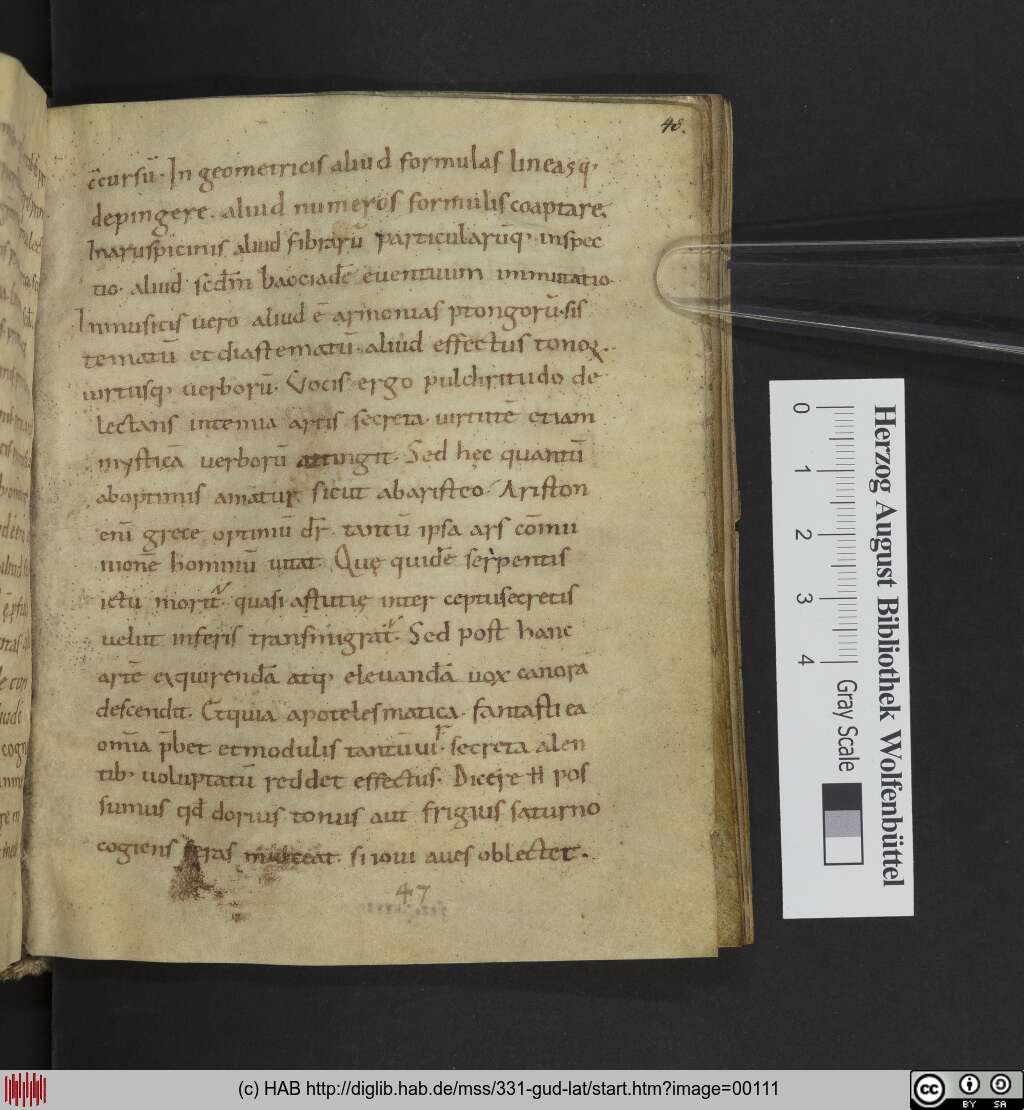 48.
c̄cursū. In geometricis aliud formulas lineasq;
depingere. aliud numeros formulis coaptare.
Inaruspicinis aliud fibrarū particularūq; inspec
tio. aliud scdm̄ baociadē euentuum immutatio.
Inmusicis uero aliud ē armonias ptongorū. sis
tematū et diastematū. aliud effectus tonoꝝ.
uirtusq; uerborū. Vocis ergo pulchritudo de
lectans intemia artis secreta. uirtutē etiam
mysticā uerborū attingit. Sed hęc quantū
aboptimis amatur sicut abaristeo. Ariston
enī grece optimū dr̄. tantū ipsa ars cōmu
nionē hominū uitat. Quę quidē serpentis
ictu morit᷑. quasi astutię inter ceptusecretis
uelut inferis transmigrat᷑. Sed post hanc
artē exquirendā atq; eleuandā uox canora
descendit. Etquia apotelesmatica. fantasti ea
omīa p̄bet. etmodulis tantū
secreta alen
tib; uoluptatū reddet effectus. Dicere
pos
sumus qđ dorius tonus aut frigius saturno
cogiens feras mulceat. si ioui aues oblectet.
47
0 1 2 3 4
Gray Scale
Herzog August Bibliothek Wolfenbüttel
(c) HAB http://diglib.hab.de/mss/331-gud-lat/start.htm?image=00111
cc BY SA